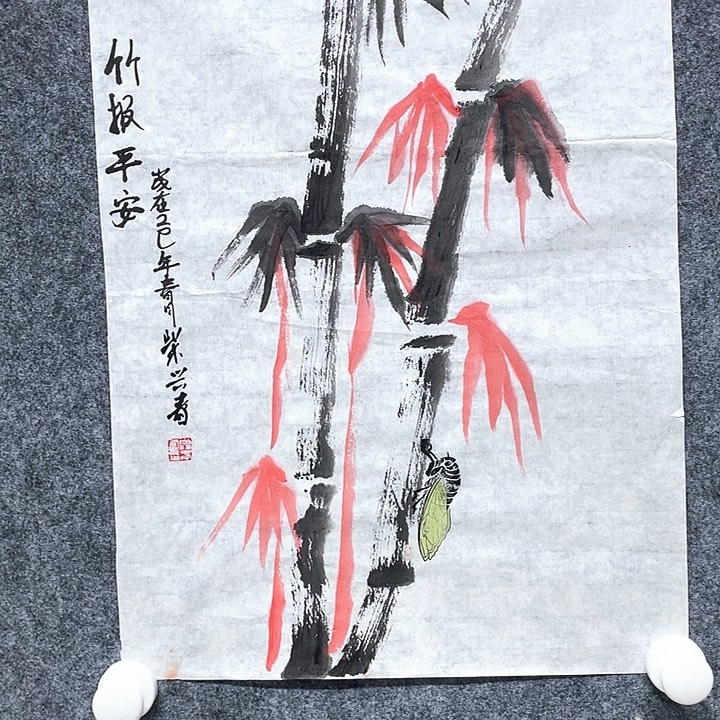 竹报平安
岁在乙巳年春月柴兴春